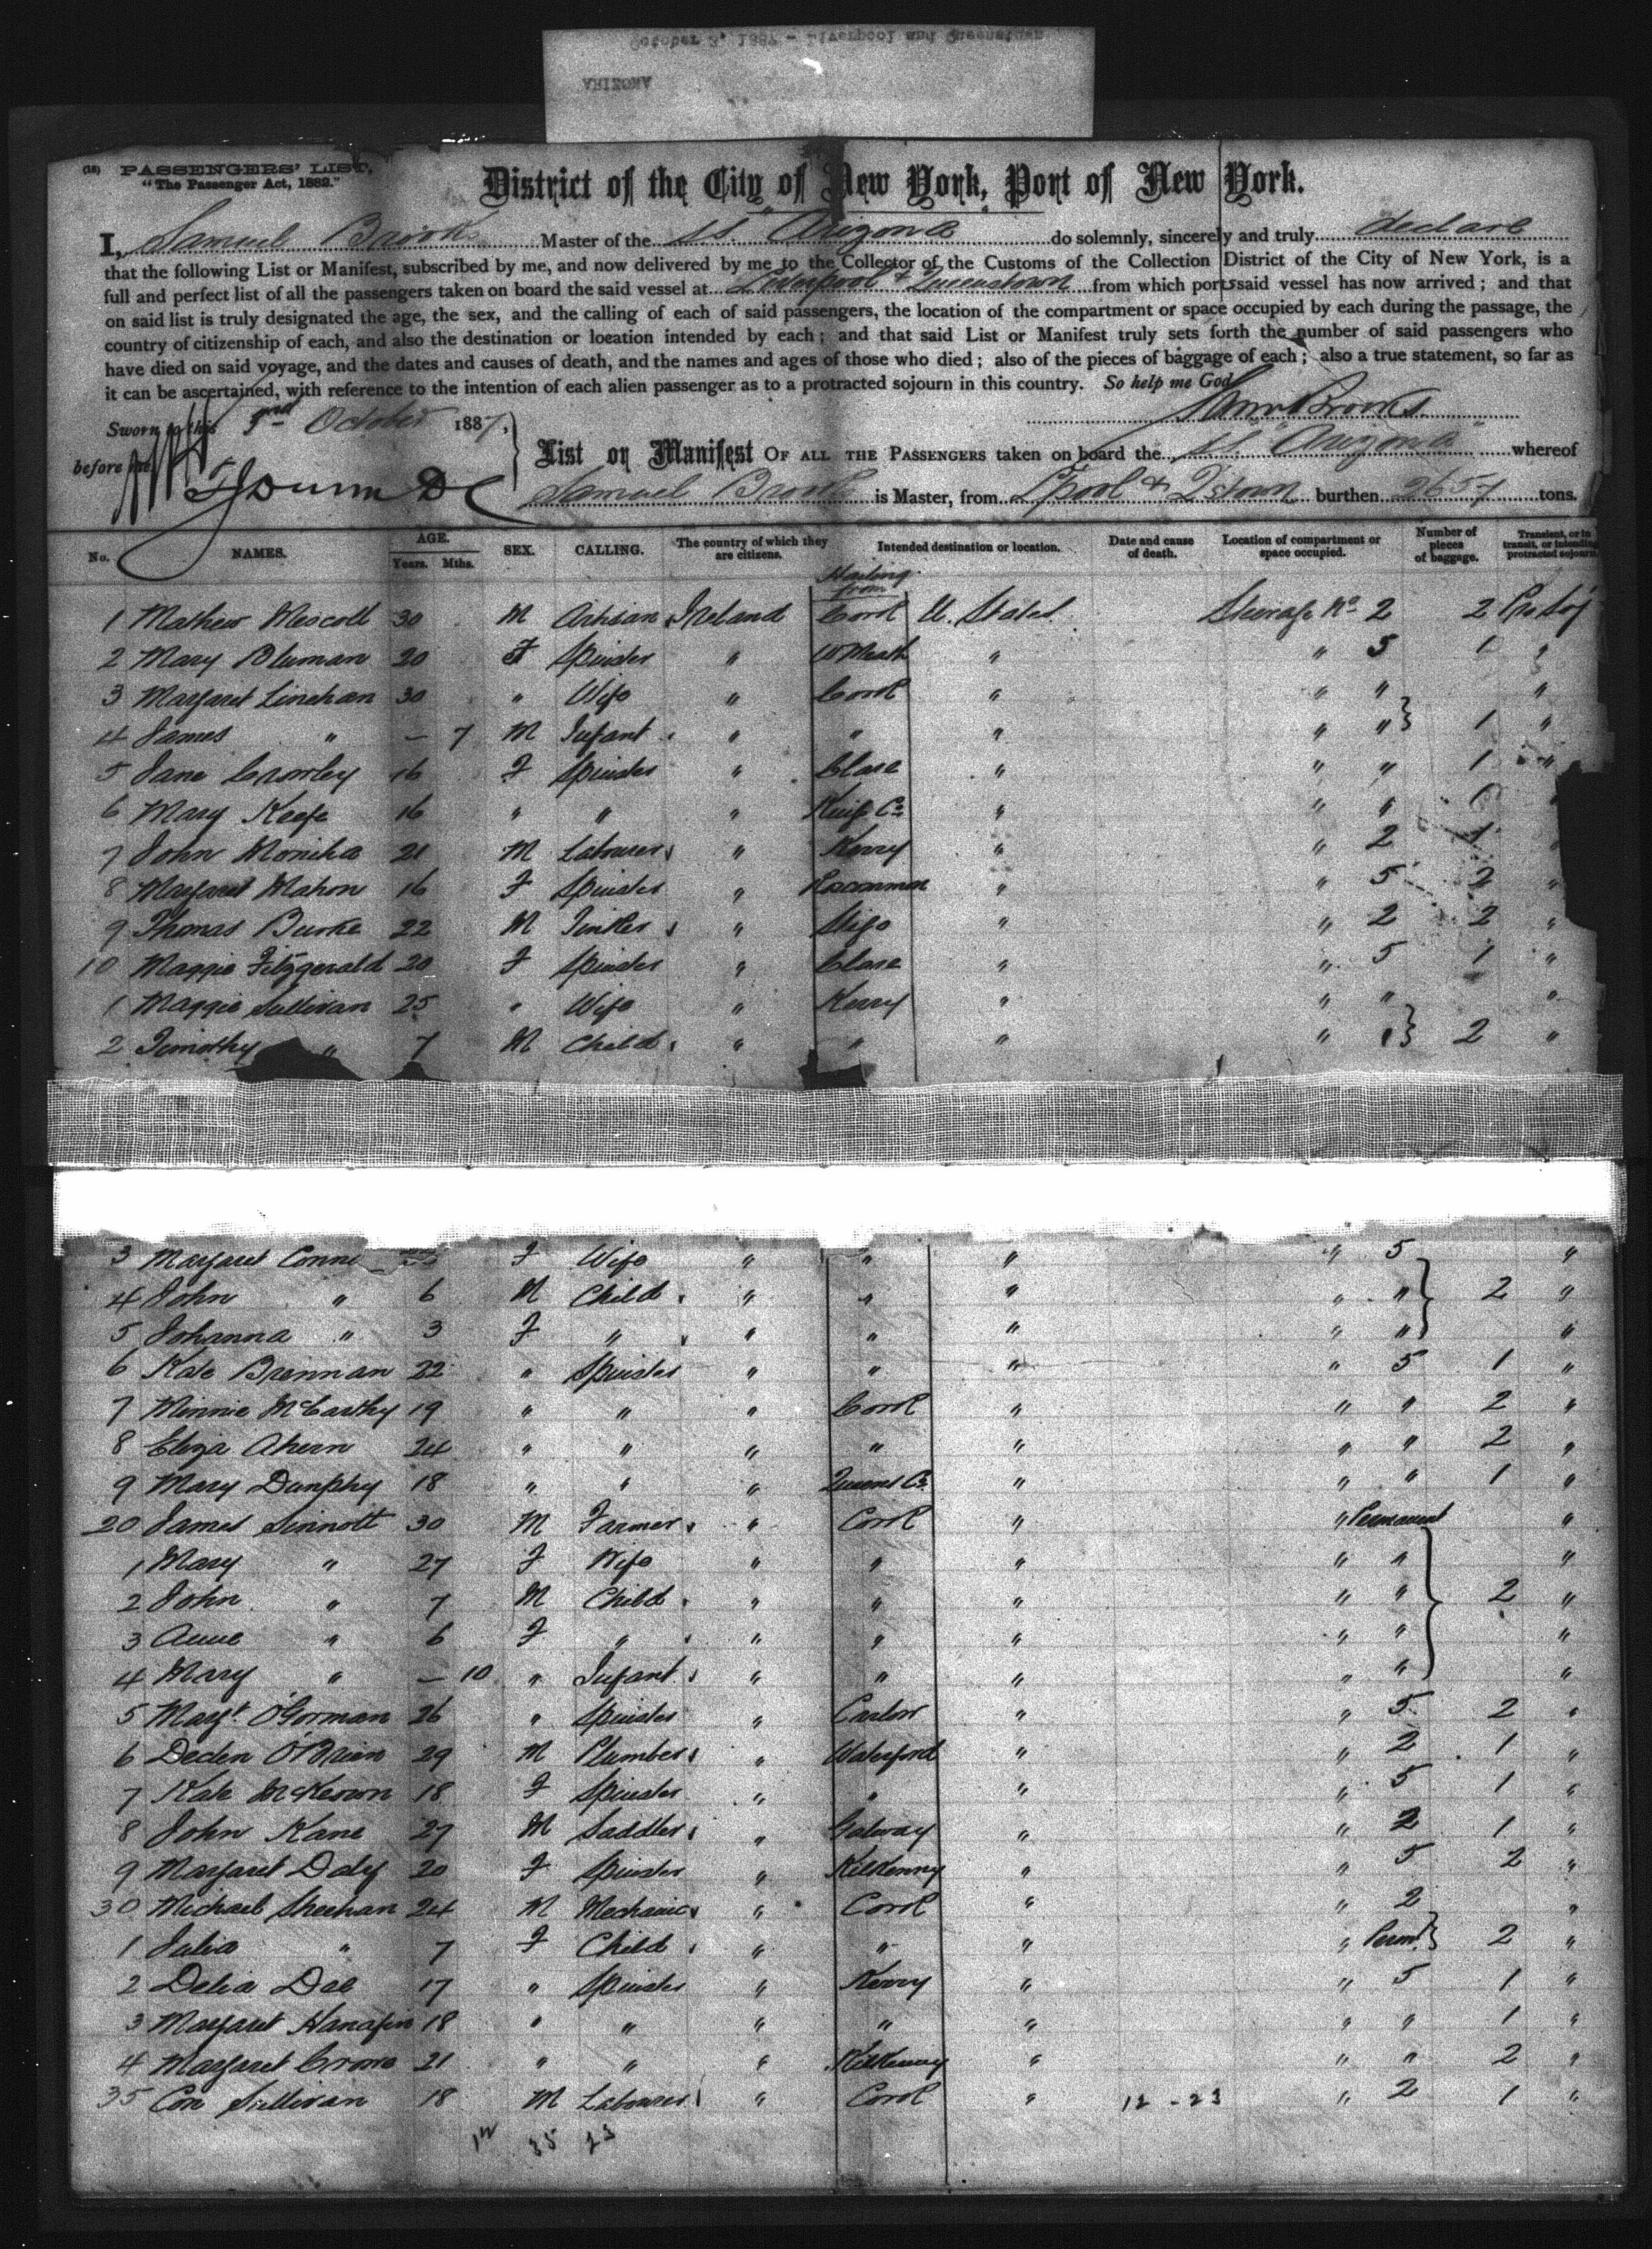 October 3, 1887 - Liverpool and Queenstown
ARIZONA
(18) PASSENGERS' LIST.
"The Passenger Act, 1882."
District of the City of New York, Port of New York.
I, Samuel Brooks Master of the SS. "Arizona do solemnly, sincerely and truly declare
that the following List or Manifest, subscribed by me, and now delivered by me to the Collector of the Customs of the Collection District of the City of New York, is a
full and perfect list of all the passengers taken on board the said vessel at Liverpool & Queenstown from which ports said vessel has now arrived; and that
on said list is truly designated the age, the sex, and the calling of each of said passengers, the location of the compartment or space occupied by each during the passage, the
country of citizenship of each, and also the destination or location intended by each; and that said List or Manifest truly sets forth the number of said passengers who
have died on said voyage, and the dates and causes of death, and the names and ages of those who died; also of the pieces of baggage of each; also a true statement, so far as
it can be ascertained, with reference to the intention of each alien passenger as to a protracted sojourn in this country. So help me God
Saml Brooks
Sworn to this 3rd October 1887,
before me
List or Manifest OF ALL THE PASSENGERS taken on board the SS "Arizona" whereof
Samuel Brooks is Master, from L'pool & Q'stown burthen 2657 tons.
No. NAMES. AGE. Years. Mths. SEX. CALLING. The country of which they are citizens. Intended destination or location. Date and cause of death. Location of compartment or space occupied. Number of pieces of baggage. Transient, or in transit, or intending protracted sojourn
Hailing from
1 Mathew Mescoll 30 M Artisan Ireland Cork U. States Steerage No 2 2 Pro Soj
2 Mary Bluman 20 F Spinster " WMeath " " 5 1 "
3 Margaret Linehan 30 " Wife " Cork " " " "
4 James " — 7 M Infant " " " " " 1 "
5 Jane Crowley 16 F Spinster " Clare " " " 1 "
6 Mary Keefe 16 " " " Kings Co " " " 1 "
7 John Moniha 21 M Labourer " Kerry " " 2 1
8 Margaret Mahon 16 F Spinster " Roscommon " " 5 2 "
9 Thomas Burke 22 M Tinker " Sligo " " 2 2 "
10 Maggie Fitzgerald 20 F Spinster " Clare " " 5 1 "
1 Maggie Sullivan 25 " Wife " Kerry " " " "
2 Timothy " 7 M Child " " " " 2 "
3 Margaret Conne F Wife " " " " 5 "
4 John " 6 M Child " " " " " 2 "
5 Johanna " 3 F " " " " " " "
6 Kate Brennan 22 " Spinster " " " " 5 1 "
7 Minnie McCarthy 19 " " " Cork " " " 2 "
8 Eliza Ahern 24 " " " " " " " 2 "
9 Mary Dunphy 18 " " " Queens Co. " " " 1 "
20 James Sinnott 30 M Farmer " Cork " " Permanent "
1 Mary " 27 F Wife " " " " " "
2 John " 7 M Child " " " " " 2 "
3 Anne " 6 F " " " " " " "
4 Mary " — 10 " Infant " " " " " "
5 Margt. O'Gorman 26 " Spinster " Carlow " " 5 2 "
6 Declen O'Brien 29 M Plumber " Waterford " " 2 1 "
7 Kate McKeown 18 F Spinster " " " " 5 1 "
8 John Kane 27 M Saddler " Galway " " 2 1 "
9 Margaret Daly 20 F Spinster " Kilkenny " " 5 2 "
30 Michael Sheehan 24 M Mechanic " Cork " " 2 "
1 Julia " 7 F Child " " " " Permt 2 "
2 Delia Dae 17 " Spinster " Kerry " " 5 1 "
3 Margaret Hanafin 18 " " " " " " " 1 "
4 Margaret Crowe 21 " " " Kilkenny " " " 2 "
35 Con Sullivan 18 M Labourer " Cork " 12 - 23 " 2 1 "
35 23